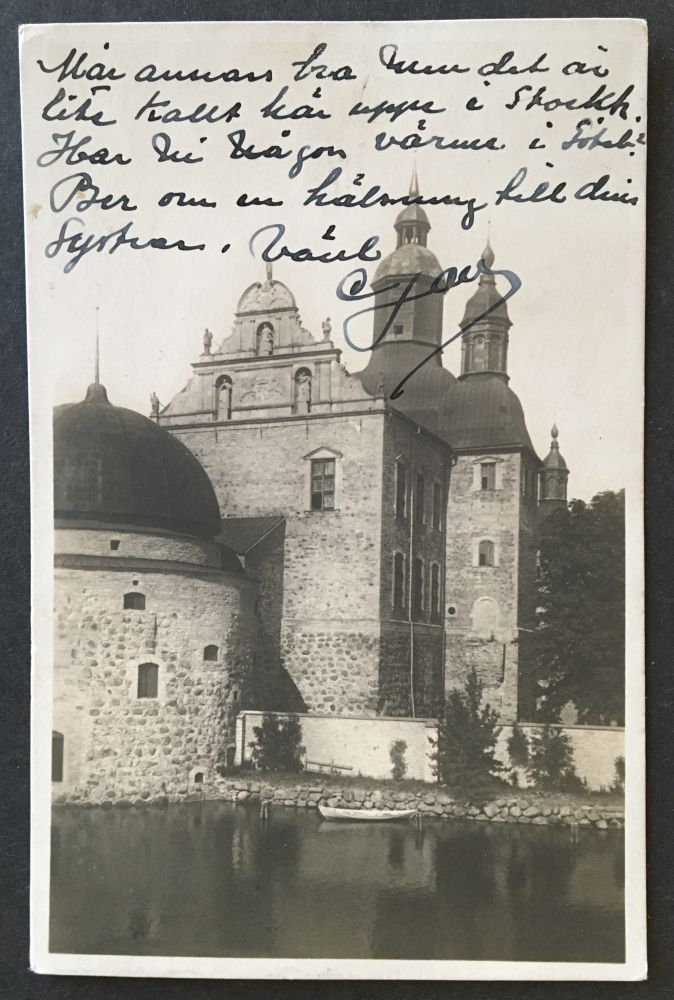 Mår annars bra men det är
lite kallt här uppe i Stockh.
Har Ni någon värme i Göteb?
Ber om en hälsning till din
Systran. Vänl